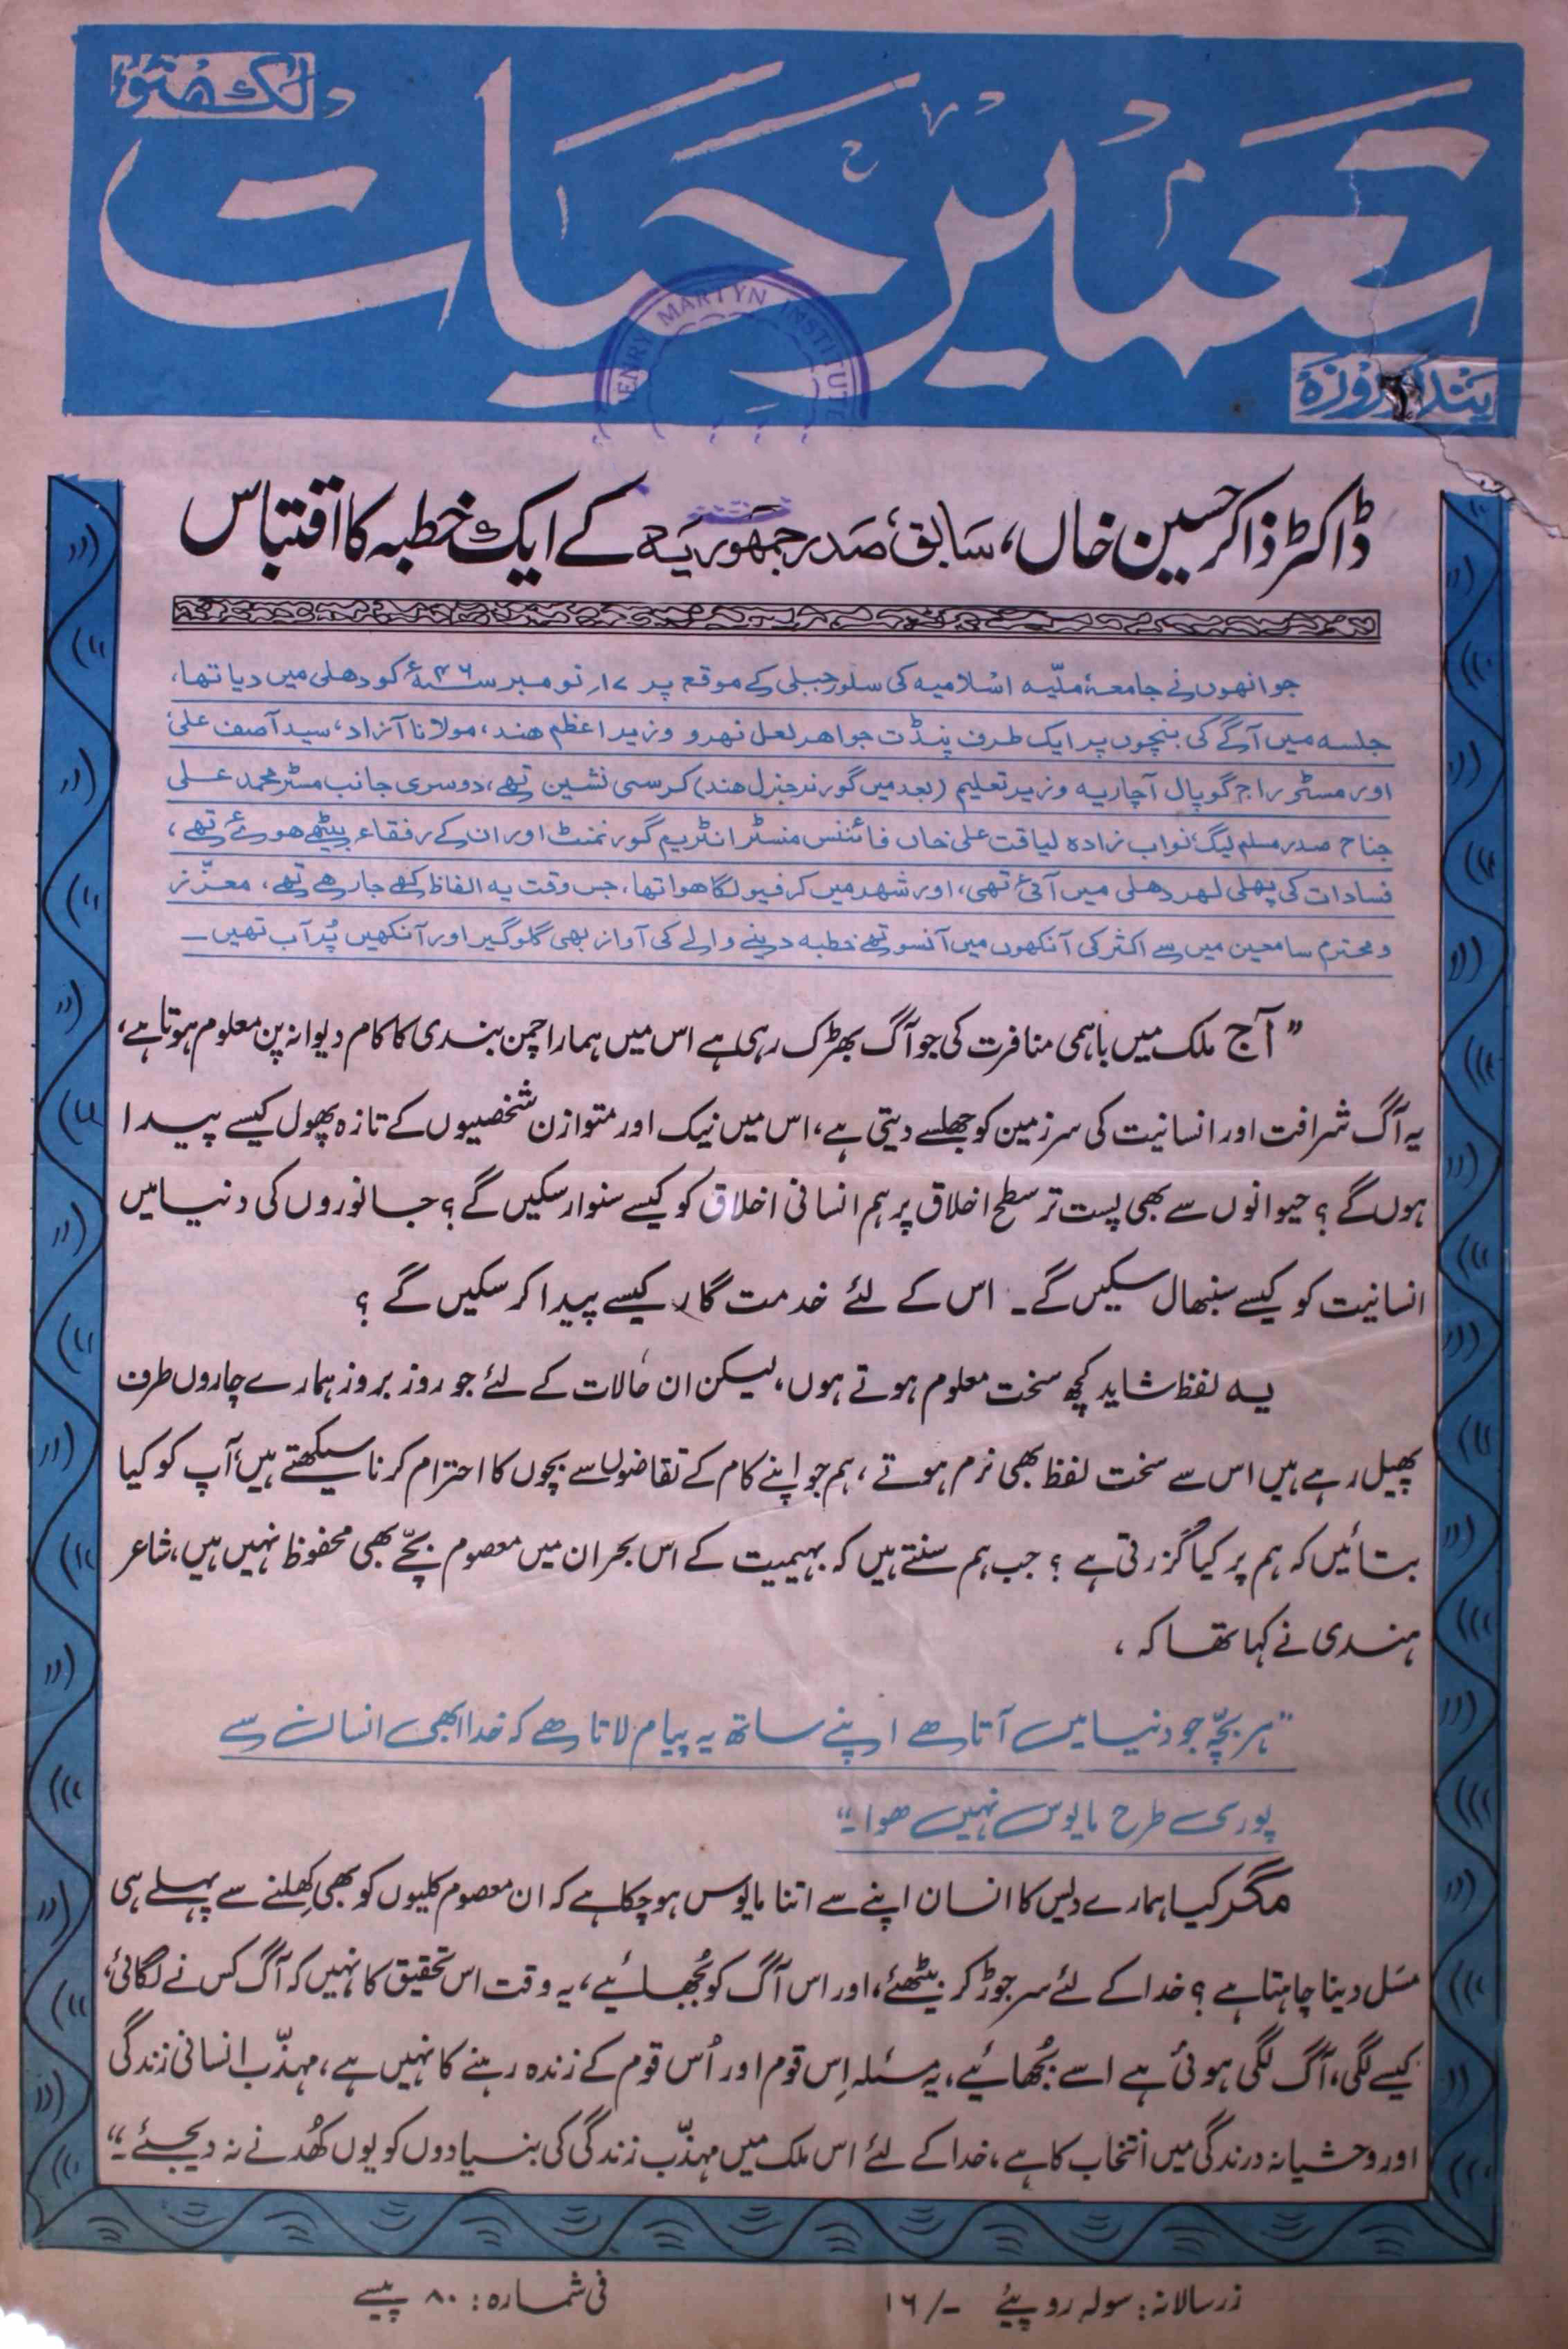 لکھنؤ
تعمیر حیات
پندرہ روزہ
HENRY MARTYN INSTITUTE
ڈاکٹر ذاکر حسین خاں، سابق صدر جمہوریہ کے ایک خطبہ کا اقتباس
جو انھوں نے جامعہ ملّیہ اسلامیہ کی سلور جبلی کے موقع پر ۱۷ر نومبر سنہ ۴۶ء کو دھلی میں دیا تھا،
جلسہ میں آگے کی بنچوں پر ایک طرف پنڈت جواھر لعل نہرو وزیر اعظم ھند، مولانا آزاد، سید آصف علی
اور مسٹر راج گوپال آچاریہ وزیر تعلیم (بعد میں گورنر جنرل ھند) کرسی نشین تھے، دوسری جانب مسٹر محمد علی
جناح صدر مسلم لیگ نواب زادہ لیاقت علی خاں فائننس منسٹر انٹریم گورنمنٹ اور ان کے رفقاء بیٹھے ھوئے تھے،
فسادات کی پھلی لھر دھلی میں آئی تھی، اور شھر میں کرفیو لگا ھوا تھا، جس وقت یہ الفاظ کہے جا رھے تھے، معزّز
و محترم سامعین میں سے اکثر کی آنکھوں میں آنسو تھے خطبہ دینے والے کی آواز بھی گلوگیر اور آنکھیں پُر آب تھیں ۔
” آج ملک میں باہمی منافرت کی جو آگ بھڑک رہی ہے اس میں ہمارا چمن بندی کا کام دیوانہ پن معلوم ہوتا ہے،
یہ آگ شرافت اور انسانیت کی سرزمین کو جھلسے دیتی ہے، اس میں نیک اور متوازن شخصیوں کے تازہ پھول کیسے پیدا
ہوں گے ؟ حیوانوں سے بھی پست تر سطح اخلاق پر ہم انسانی اخلاق کو کیسے سنوار سکیں گے ؟ جانوروں کی دنیا میں
انسانیت کو کیسے سنبھال سکیں گے ۔ اس کے لئے خدمت گار کیسے پیدا کر سکیں گے ؟
یہ لفظ شاید کچھ سخت معلوم ہوتے ہوں، لیکن ان حالات کے لئے جو روز بروز ہمارے چاروں طرف
پھیل رہے ہیں اس سے سخت لفظ بھی نرم ہوتے ، ہم جو اپنے کام کے تقاضوں سے بچوں کا احترام کرنا سیکھتے ہیں، آپ کو کیا
بتائیں کہ ہم پر کیا گزرتی ہے ؟ جب ہم سنتے ہیں کہ بہیمیت کے اس بحران میں معصوم بچّے بھی محفوظ نہیں ہیں، شاعر
ہندی نے کہا تھا کہ ،
”ہر بچّہ جو دنیا میں آتا ھے اپنے ساتھ یہ پیام لاتا ھے کہ خدا ابھی انسان سے
پوری طرح مایوس نہیں ھوا ۔“
مگر کیا ہمارے دیس کا انسان اپنے سے اتنا مایوس ہو چکا ہے کہ ان معصوم کلیوں کو بھی کِھلنے سے پہلے ہی
مَسل دینا چاہتا ہے ؟ خدا کے لئے سر جوڑ کر بیٹھئے، اور اس آگ کو بُجھائیے، یہ وقت اس تحقیق کا نہیں کہ آگ کس نے لگائی،
کیسے لگی، آگ لگی ہوئی ہے اسے بُجھائیے، یہ مسئلہ اِس قوم اور اُس قوم کے زندہ رہنے کا نہیں ہے، مہذّب انسانی زندگی
اور وحشیانہ درندگی میں انتخاب کا ہے، خدا کے لئے اس ملک میں مہذّب زندگی کی بنیادوں کو یوں کُھدنے نہ دیجئے ۔“
زر سالانہ: سولہ روپئے ۱۶/-
فی شمارہ: ۸۰ پیسے